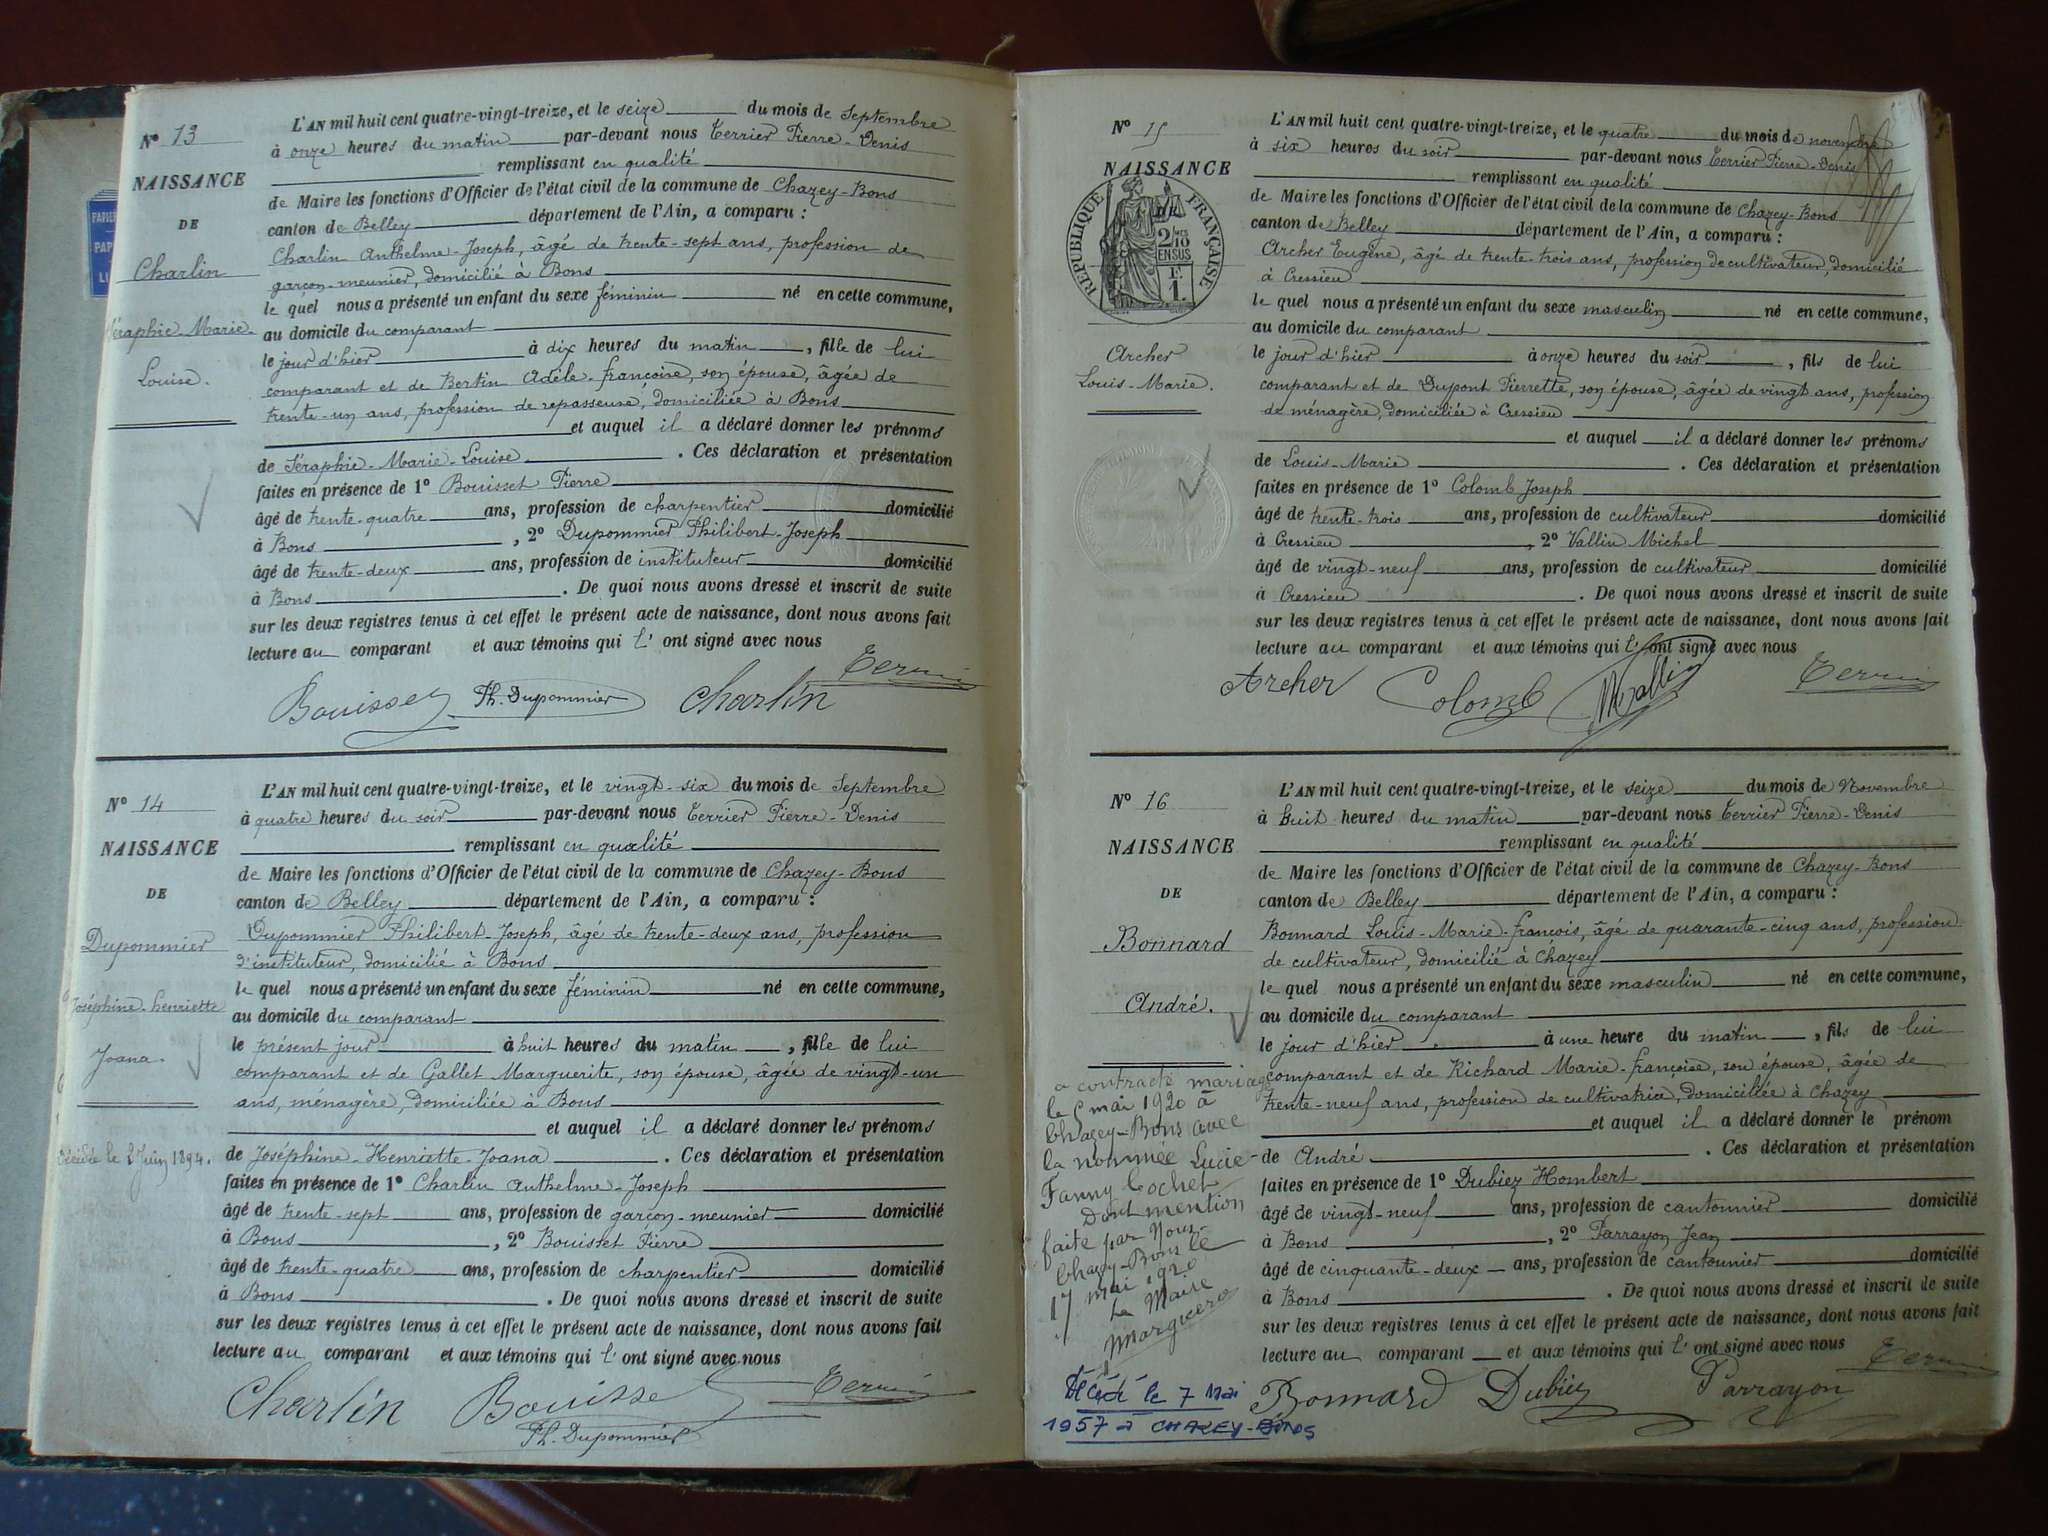 N° 13
NAISSANCE
DE
Charlin
Séraphie-Marie-
Louise.
L'AN mil huit cent quatre-vingt-treize, et le seize du mois de Septembre
à onze heures du matin par-devant nous Terrier Pierre-Denis
remplissant en qualité
de Maire les fonctions d'Officier de l'état civil de la commune de Chazey-Bons
canton de Belley département de l'Ain, a comparu :
Charlin Anthelme-Joseph, âgé de trente-sept ans, profession de
garçon-meunier, domicilié à Bons
le quel nous a présenté un enfant du sexe féminin né en cette commune,
au domicile du comparant
le jour d'hier à dix heures du matin, fille de lui
comparant et de Bertin Adèle-françoise, son épouse, âgée de
trente-un ans, profession de repasseuse, domiciliée à Bons
et auquel il a déclaré donner les prénoms
de Séraphie-Marie-Louise. Ces déclaration et présentation
faites en présence de 1° Bouisset Pierre
âgé de trente-quatre ans, profession de charpentier domicilié
à Bons, 2° Dupommier Philibert-Joseph
âgé de trente-deux ans, profession de instituteur domicilié
à Bons. De quoi nous avons dressé et inscrit de suite
sur les deux registres tenus à cet effet le présent acte de naissance, dont nous avons fait
lecture au comparant et aux témoins qui l'ont signé avec nous
Bouisset Ph. Dupommier Charlin Terrier
N° 14
NAISSANCE
DE
Dupommier
Joséphine-henriette
Joana.
Décédée le 2 Juin 1894.
L'AN mil huit cent quatre-vingt-treize, et le vingt-six du mois de Septembre
à quatre heures du soir par-devant nous Terrier Pierre-Denis
remplissant en qualité
de Maire les fonctions d'Officier de l'état civil de la commune de Chazey-Bons
canton de Belley département de l'Ain, a comparu :
Dupommier Philibert-Joseph, âgé de trente-deux ans, profession
d'instituteur, domicilié à Bons
le quel nous a présenté un enfant du sexe féminin né en cette commune,
au domicile du comparant
le présent jour à huit heures du matin, fille de lui
comparant et de Gallet Marguerite, son épouse, âgée de vingt-un
ans, ménagère, domiciliée à Bons
et auquel il a déclaré donner les prénoms
de Joséphine-Henriette-Joana. Ces déclaration et présentation
faites en présence de 1° Charlin Anthelme-Joseph
âgé de trente-sept ans, profession de garçon-meunier domicilié
à Bons, 2° Bouisset Pierre
âgé de trente-quatre ans, profession de charpentier domicilié
à Bons. De quoi nous avons dressé et inscrit de suite
sur les deux registres tenus à cet effet le présent acte de naissance, dont nous avons fait
lecture au comparant et aux témoins qui l'ont signé avec nous
Charlin Bouisset Terrier
Ph. Dupommier
N° 15
NAISSANCE
RÉPUBLIQUE FRANÇAISE
2/10
EN SUS
1F.
Archer
Louis-Marie.
L'AN mil huit cent quatre-vingt-treize, et le quatre du mois de novembre
à six heures du soir par-devant nous Terrier Pierre-Denis
remplissant en qualité
de Maire les fonctions d'Officier de l'état civil de la commune de Chazey-Bons
canton de Belley département de l'Ain, a comparu :
Archer Eugène, âgé de trente-trois ans, profession de cultivateur, domicilié
à Cressieu
le quel nous a présenté un enfant du sexe masculin né en cette commune,
au domicile du comparant
le jour d'hier à onze heures du soir, fils de lui
comparant et de Dupont Pierrette, son épouse, âgée de vingt ans, profession
de ménagère, domiciliée à Cressieu
et auquel il a déclaré donner les prénoms
de Louis-Marie. Ces déclaration et présentation
faites en présence de 1° Colomb Joseph
âgé de trente-trois ans, profession de cultivateur domicilié
à Cressieu, 2° Vallin Michel
âgé de vingt-neuf ans, profession de cultivateur domicilié
à Cressieu. De quoi nous avons dressé et inscrit de suite
sur les deux registres tenus à cet effet le présent acte de naissance, dont nous avons fait
lecture au comparant et aux témoins qui l'ont signé avec nous
Archer Colomb M Vallin Terrier
N° 16
NAISSANCE
DE
Bonnard
André.
a contracté mariage
le 6 mai 1920 à
Chazey-Bons avec
la nommée Lucie-
Fanny Cochet
Dont mention
faite par Nous
Chazey-Bons le
17 mai 1920
Le Maire
Décédé le 7 Mai
1957 à CHAZEY-BONS
L'AN mil huit cent quatre-vingt-treize, et le seize du mois de Novembre
à huit heures du matin par-devant nous Terrier Pierre-Denis
remplissant en qualité
de Maire les fonctions d'Officier de l'état civil de la commune de Chazey-Bons
canton de Belley département de l'Ain, a comparu :
Bonnard Louis-Marie-françois, âgé de quarante-cinq ans, profession
de cultivateur, domicilié à Chazey
le quel nous a présenté un enfant du sexe masculin né en cette commune,
au domicile du comparant
le jour d'hier à une heure du matin, fils de lui
comparant et de Richard Marie-françoise, son épouse, âgée de
trente-neuf ans, profession de cultivatrice, domiciliée à Chazey
et auquel il a déclaré donner le prénom
de André. Ces déclaration et présentation
faites en présence de 1° Dubiez Hombert
âgé de vingt-neuf ans, profession de cantonnier domicilié
à Bons, 2° Parrayon Jean
âgé de cinquante-deux ans, profession de cantonnier domicilié
à Bons. De quoi nous avons dressé et inscrit de suite
sur les deux registres tenus à cet effet le présent acte de naissance, dont nous avons fait
lecture au comparant et aux témoins qui l'ont signé avec nous
Bonnard Dubiez Parrayon Terrier